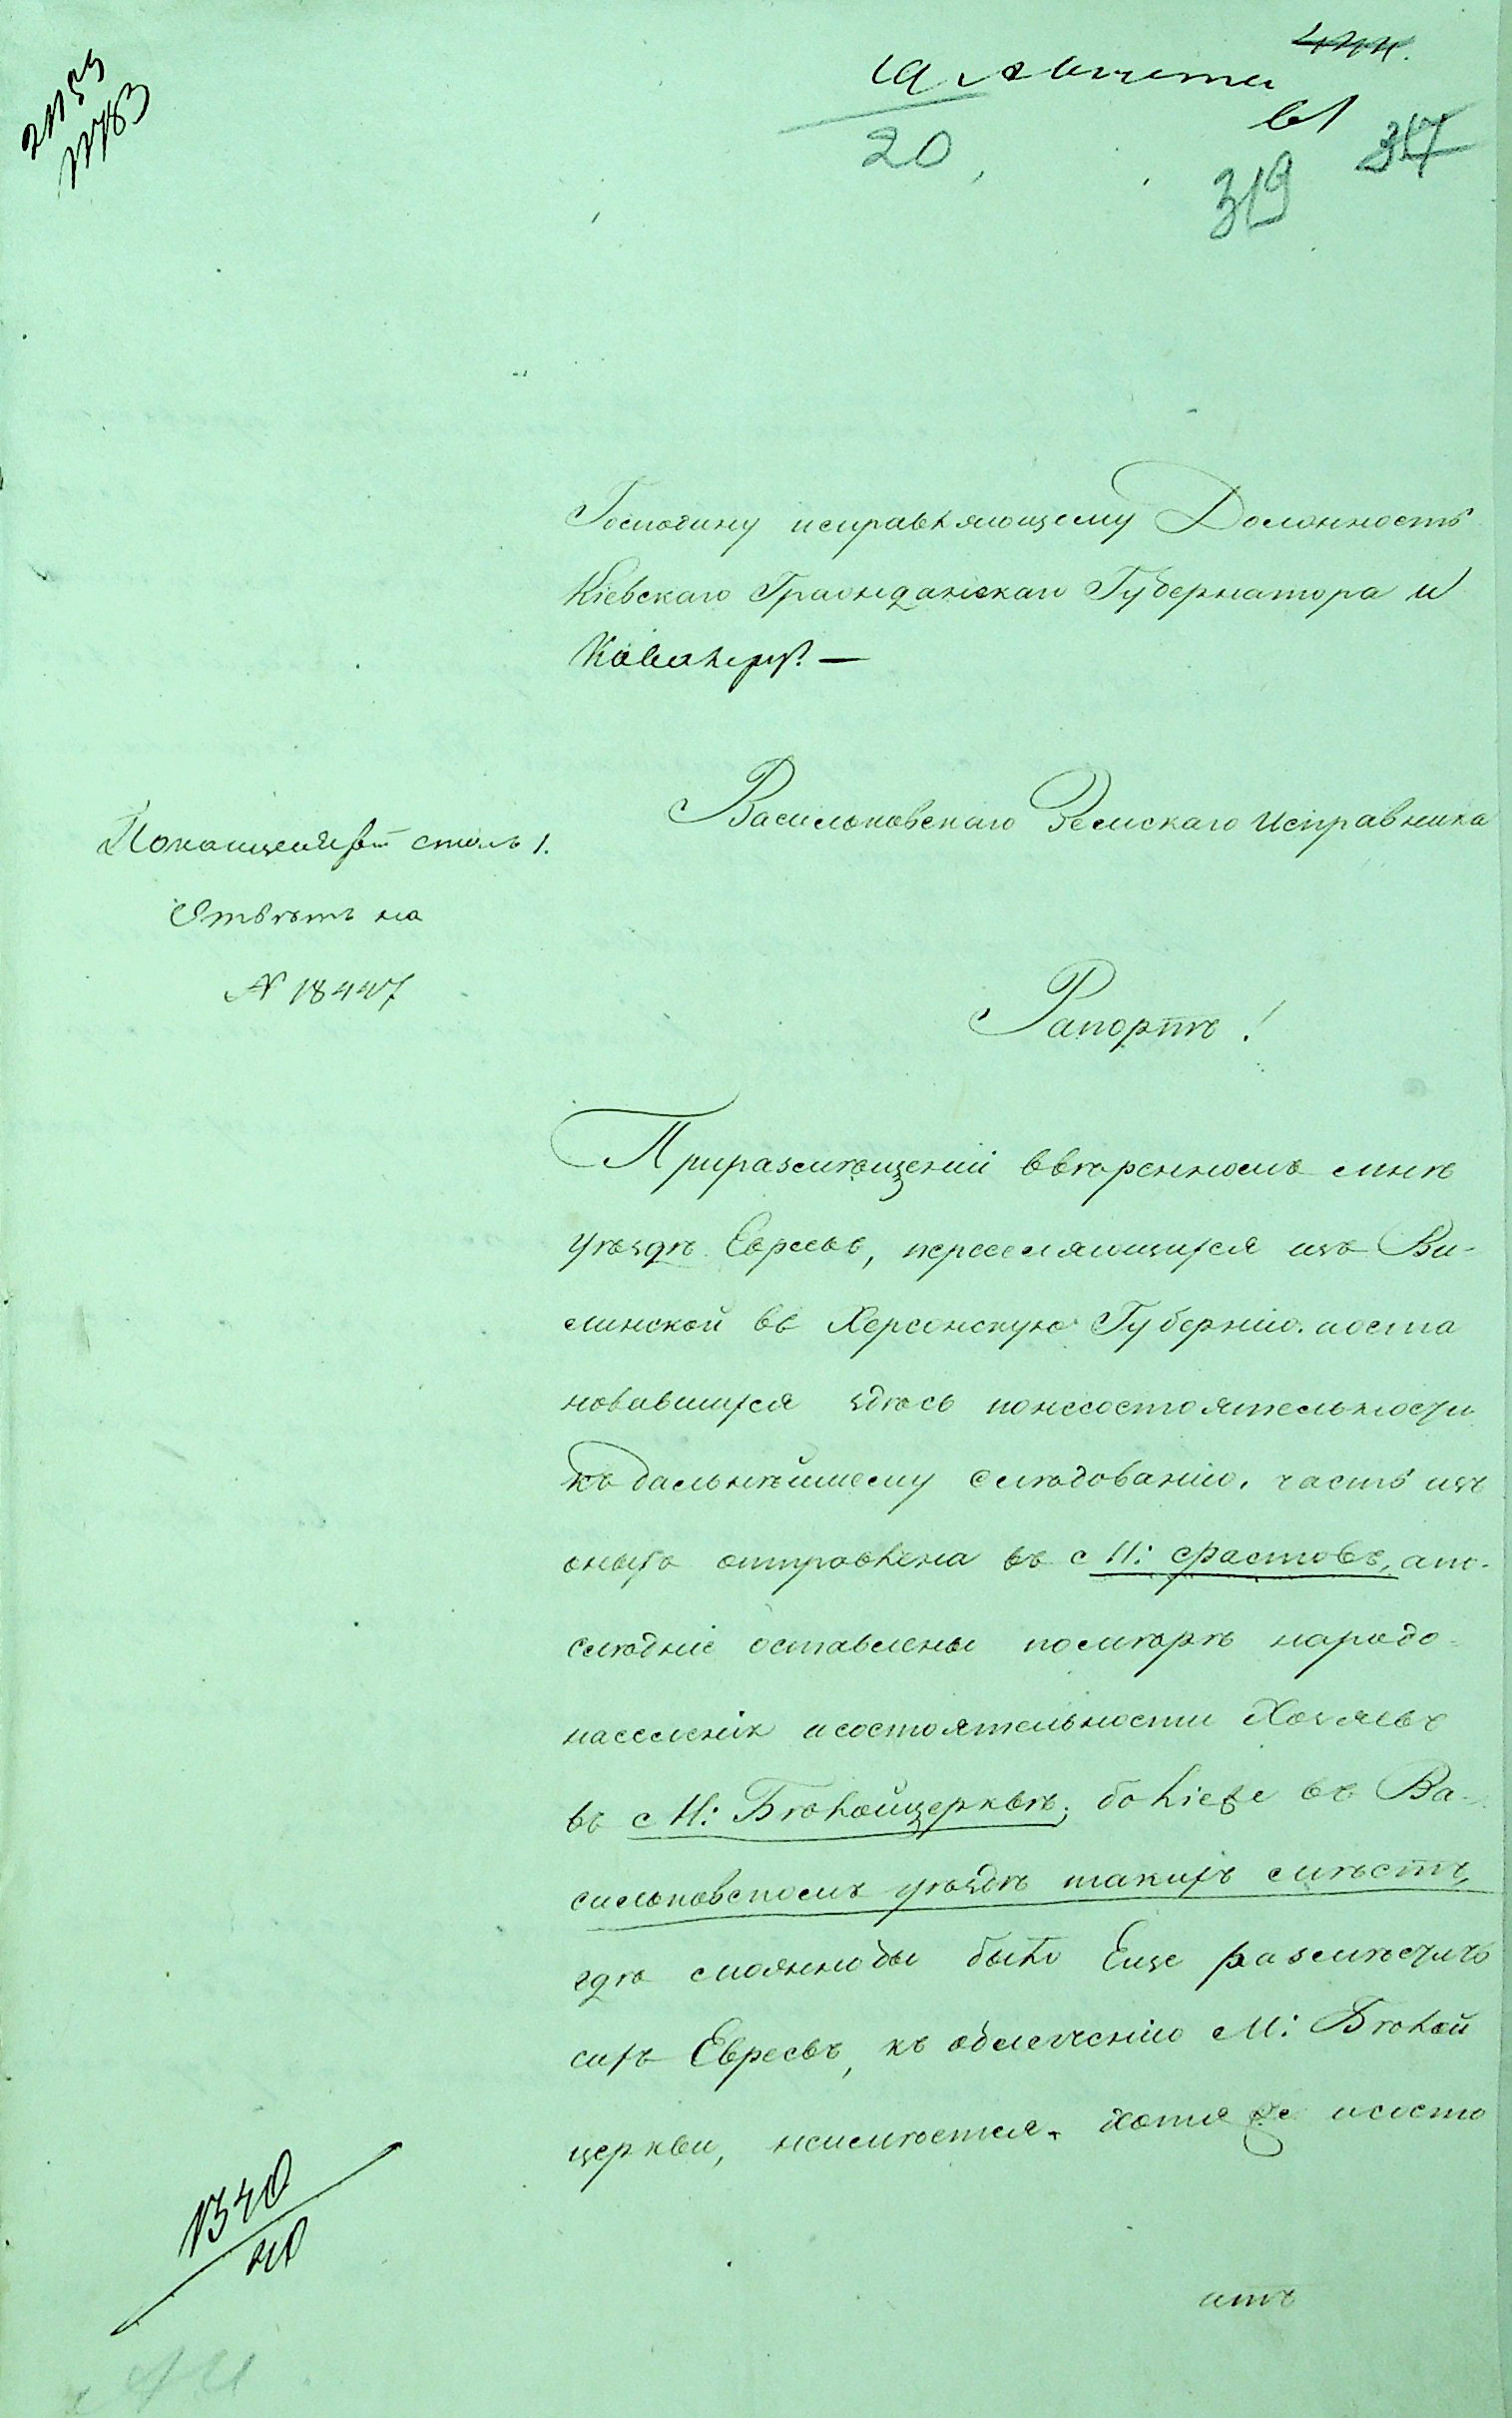 20
319
317
Господину исправляющему Должность
Кіевскаго Гражданскаго Губернатора и
Кавалеру. —
Васильковскаго Земскаго Исправника
столъ 1.
Отвѣтъ на
№ 18447
Рапортъ!
Приразмѣщеніи ввѣренномъ мнѣ
уѣздѣ Евреевъ, переселяющихся изъ Ви-
линской въ Херсонскую Губернію. аоста
новавшихся здѣсь понесостоятельности
къ дальнѣйшему слѣдованію. часть изъ
оныхъ отправлена въ М: Фастовъ, апо-
слѣдніе оставлены помѣрѣ народо-
населенія исостоятельности Хозяевъ
въ М: Бѣлойцеркви; болѣе въ Ва-
сильковскомъ уѣздѣ такихъ мѣстъ,
гдѣ можнобы было Еще размѣстить
сихъ Евреевъ, къ облегченію М: Бѣлой
церкви, неимѣется. хотя же исосто
1340